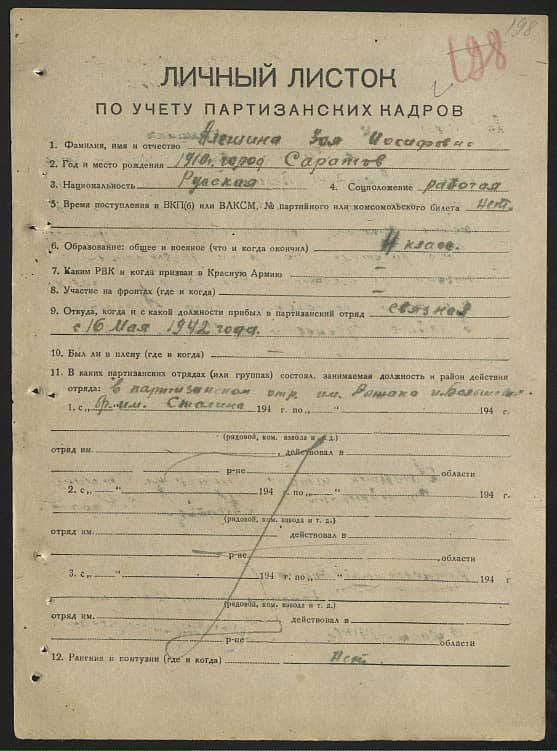 198
198
ЛИЧНЫЙ ЛИСТОК
ПО УЧЕТУ ПАРТИЗАНСКИХ КАДРОВ
1. Фамилия, имя и отчество Алешина Зоя Иосифовна
2. Год и место рождения 1910г. город Саратов
3. Национальность Русская 4. Соцположение рабочая
5. Время поступления в ВКП(б) или ВЛКСМ, № партийного или комсомольского билета нет.
6. Образование: общее и военное (что и когда окончил) 4 класс.
7. Каким РВК и когда призван в Красную Армию —
8. Участие на фронтах (где и когда) —
9. Откуда, когда и с какой должности прибыл в партизанский отряд связная
с 16 Мая 1942 года.
10. Был ли в плену (где и когда)
11. В каких партизанских отрядах (или группах) состоял, занимаемая должность и район действия
отряда: в партизанском отр. им.
1. с „ “ бр. им. Сталина 194 г. по „ “ 194 г.
(рядовой, ком. взвода и т. д.)
отряд им. действовал в
р-не области
2. с „ “ 194 г. по „ “ 194 г.
(рядовой, ком. взвода и т. д.)
отряд им. действовал в
р-не области
3. с „ “ 194 г. по „ “ 194 г.
(рядовой, ком. взвода и т. д.)
отряд им. действовал в
р-не области
12. Ранения и контузии (где и когда) Нет.